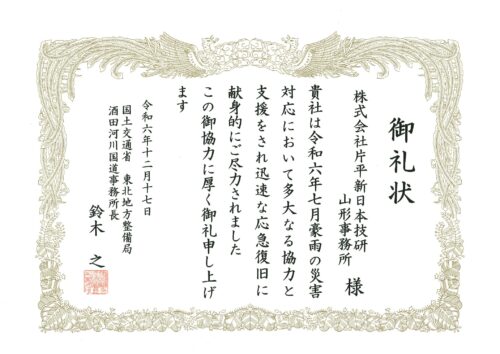 御礼状
株式会社片平新日本技研
山形事務所 様
貴社は令和六年七月豪雨の災害
対応において多大なる協力と
支援をされ迅速な応急復旧に
献身的にご尽力されました
この御協力に厚く御礼申し上げ
ます
令和六年十二月十七日
国土交通省 東北地方整備局
酒田河川国道事務所長
鈴木 之